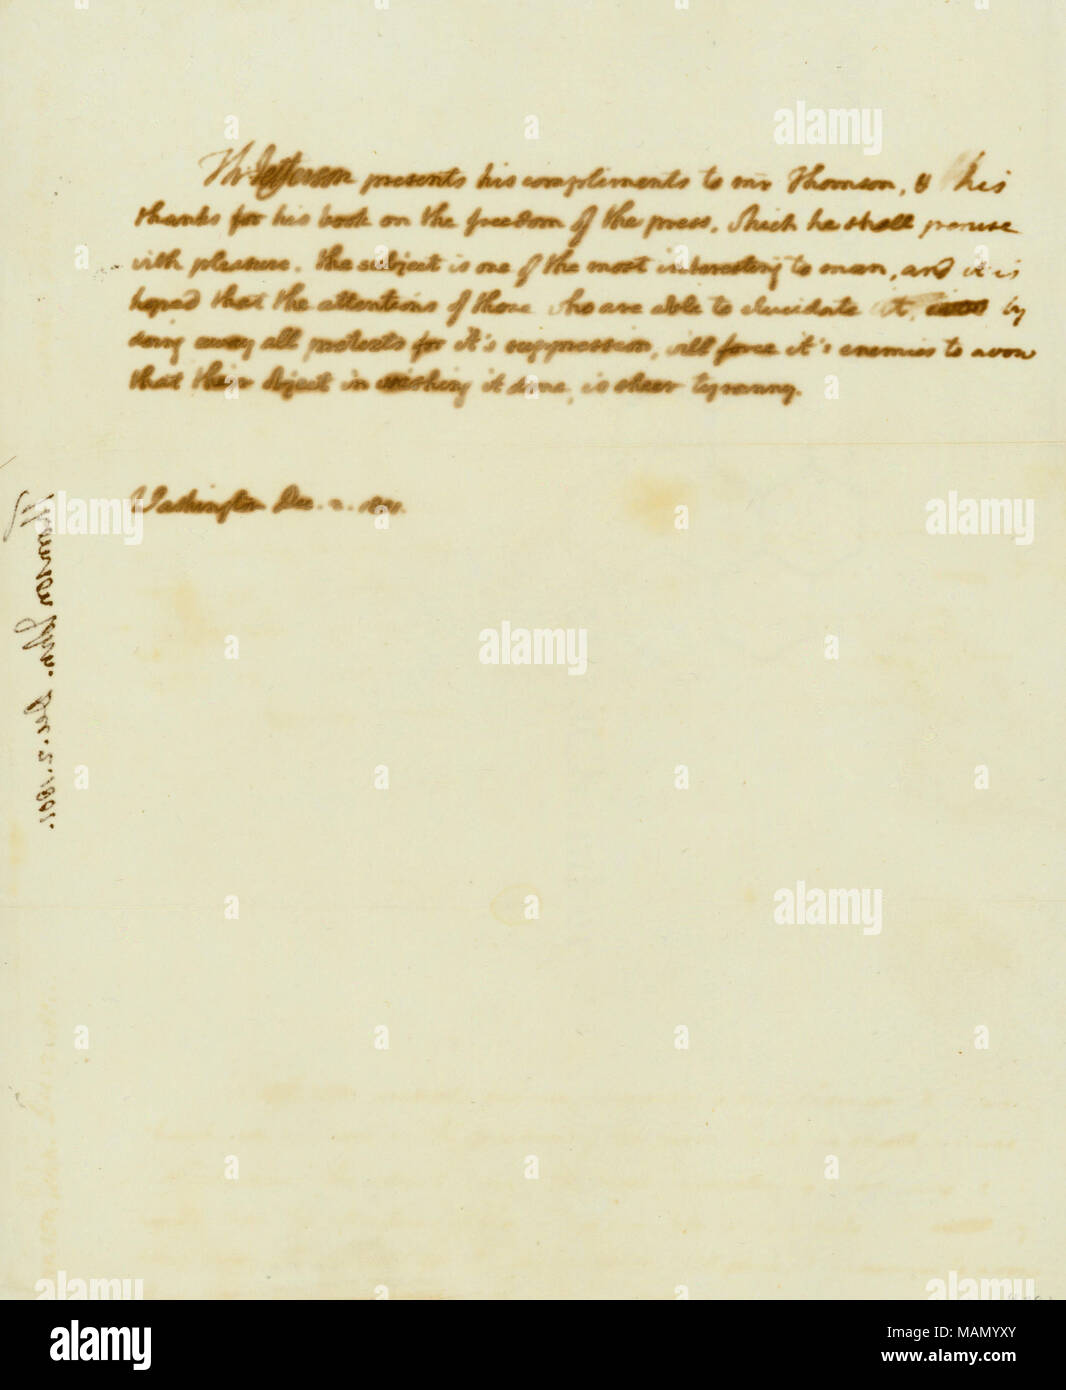 Th: Jefferson presents his compliments to mr Thomson, & his
thanks for his book on the freedom of the press, which he shall peruse
with pleasure. the subject is one of the most interesting to man, and it is
hoped that the attentions of those who are able to elucidate it, by
doing away all pretexts for it's suppression, will force it's enemies to avow
that their object in wishing it done, is sheer tyranny.
Washington Dec. 2. 1801.
Thomson John. Dec. 2. 1801.
alamy
a
alamy stock photo
MAMYXY
www.alamy.com